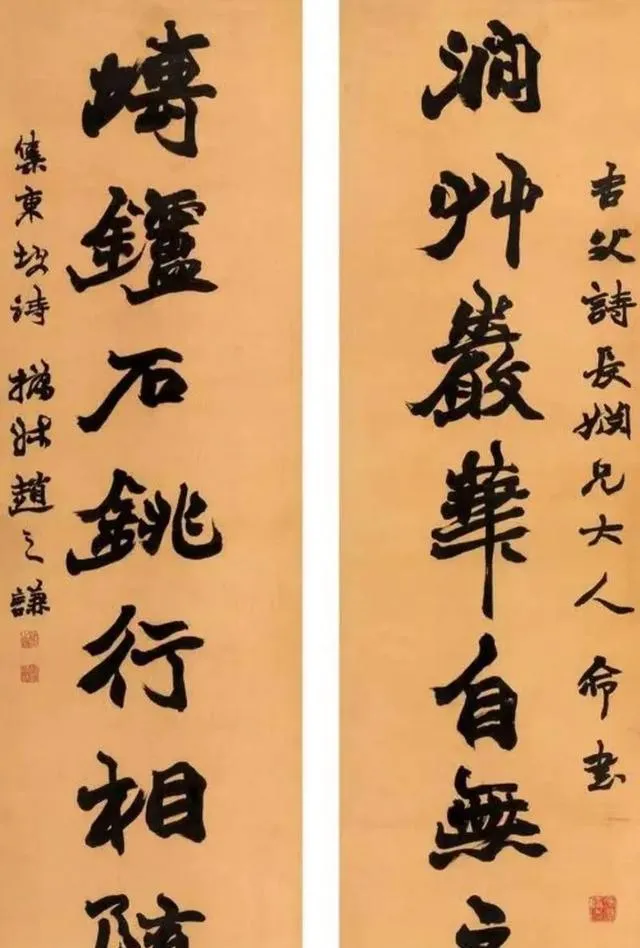 吉父詩長婣兄大人命書
澗艸巖華自無
塼鑪石銚行相
集東坡詩 撝叔趙之謙